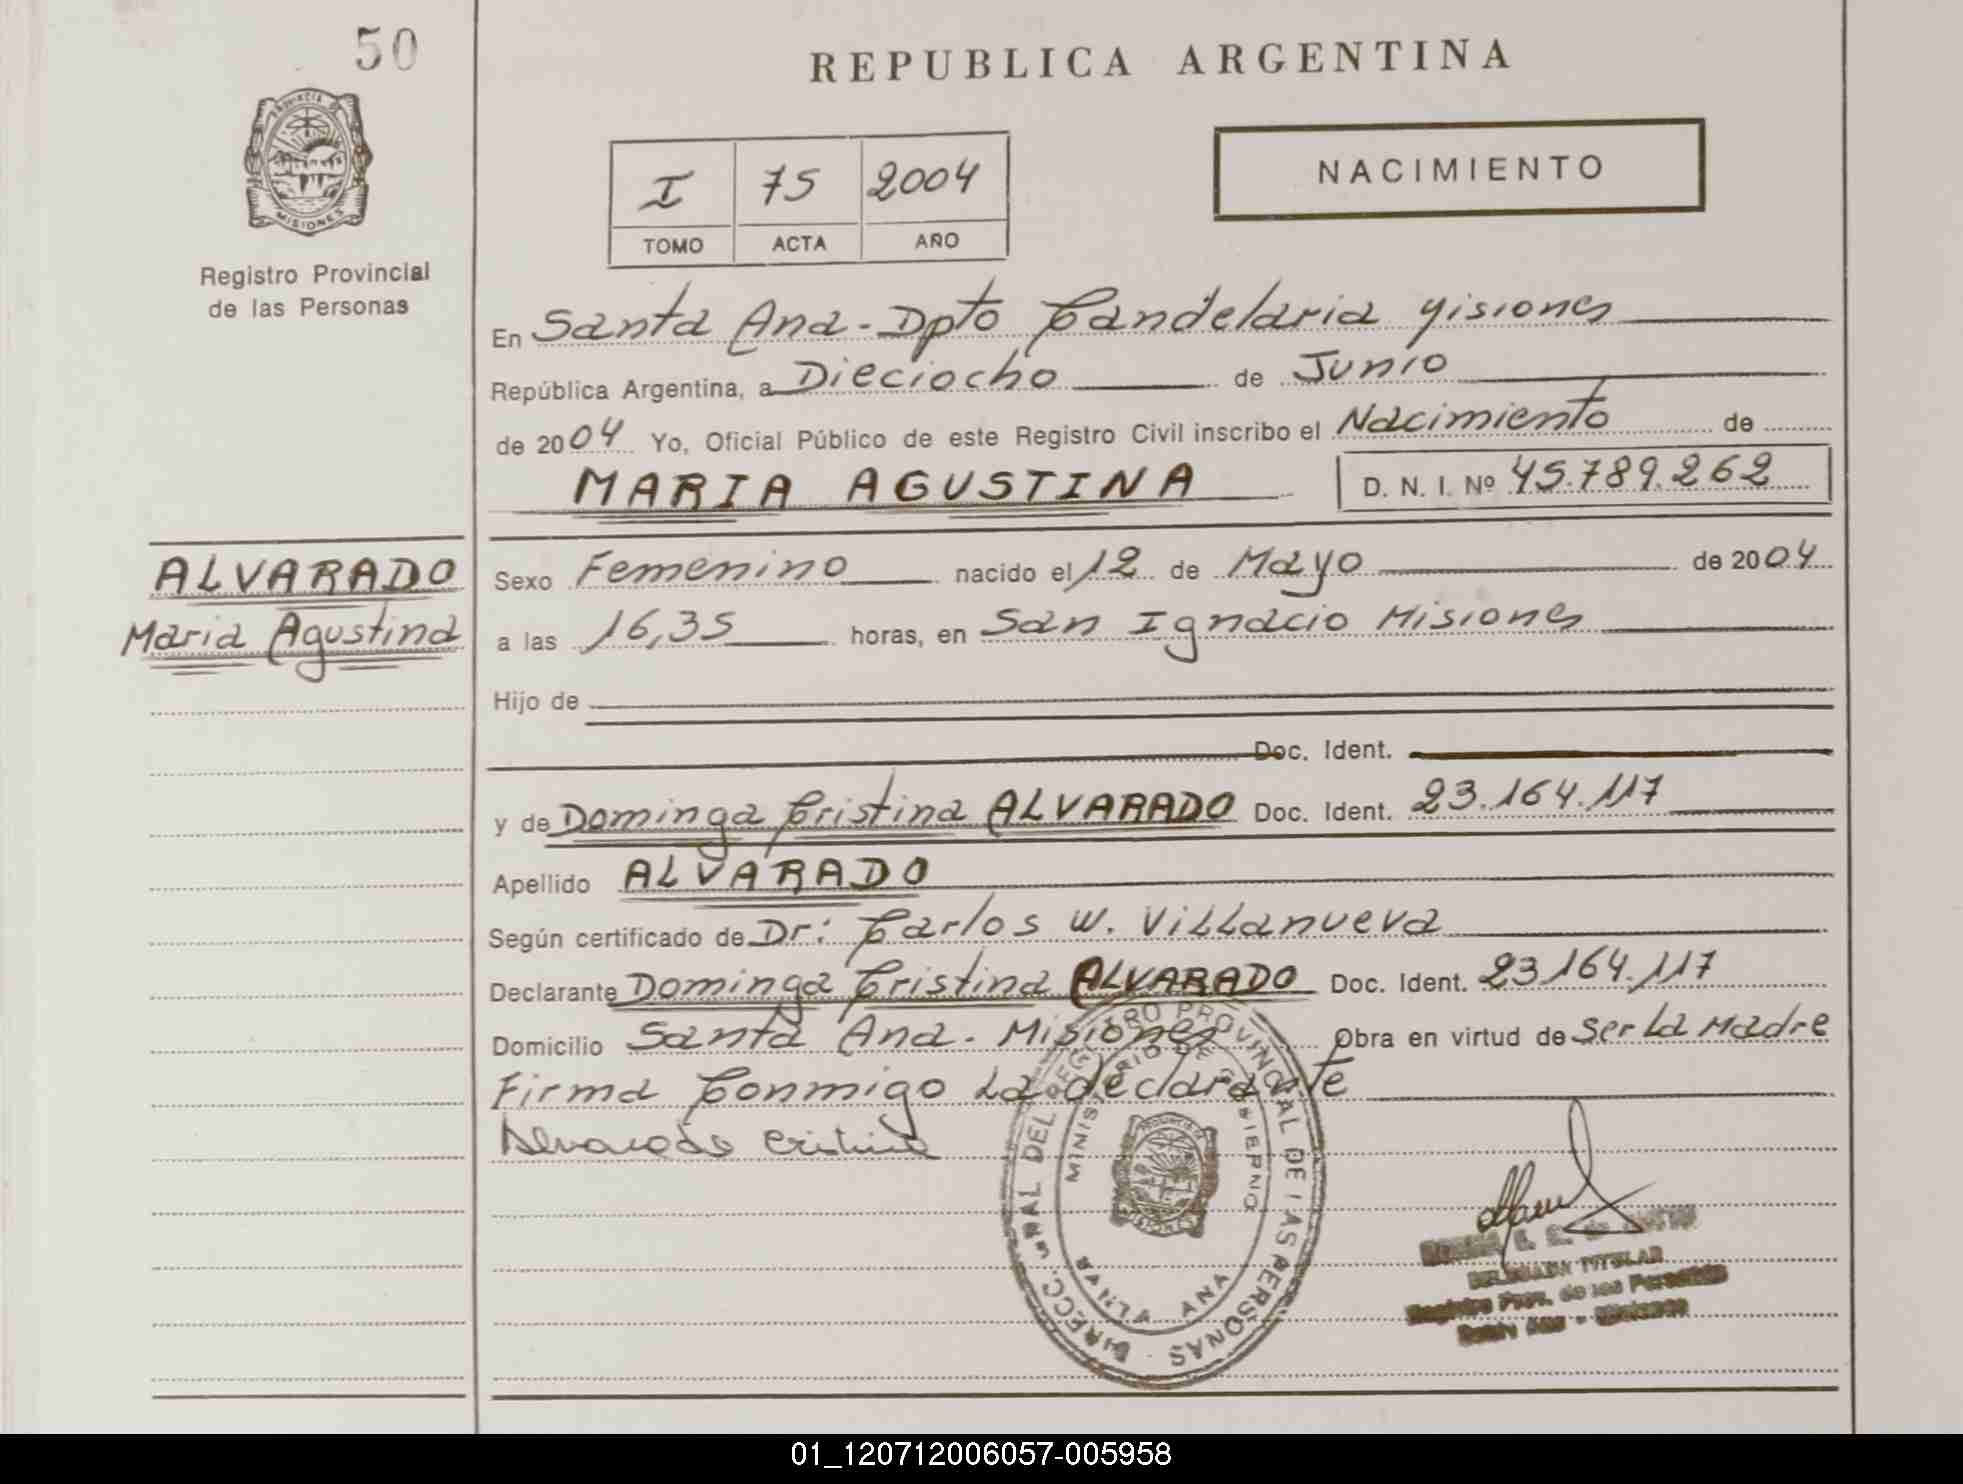 50
REPUBLICA ARGENTINA
PROVINCIA DE
MISIONES
I 75 2004
TOMO ACTA AÑO
NACIMIENTO
Registro Provincial
de las Personas
En Santa Ana - Dpto Candelaria Misiones
República Argentina, a Dieciocho de Junio
de 2004 Yo, Oficial Público de este Registro Civil inscribo el Nacimiento de
MARIA AGUSTINA D. N. I. Nº 45.789.262
ALVARADO
Maria Agustina
Sexo Femenino nacido el 12 de Mayo de 2004
a las 16,35 horas, en San Ignacio Misiones
Hijo de
Doc. Ident.
y de Dominga Cristina ALVARADO Doc. Ident. 23.164.117
Apellido ALVARADO
Según certificado de Dr: Carlos W. Villanueva
Declarante Dominga Cristina ALVARADO Doc. Ident. 23164.117
Domicilio Santa Ana - Misiones Obra en virtud de Ser La Madre
Firma Conmigo La declarante
Alvarado Cristina
DIRECC. GRAL DEL REGISTRO PROVINCIAL DE LAS PERSONAS
MINISTERIO DE GOBIERNO
SANTA ANA
DELEGADA TITULAR
Registro Prov. de las Personas
Santa Ana - Misiones
01_120712006057-005958